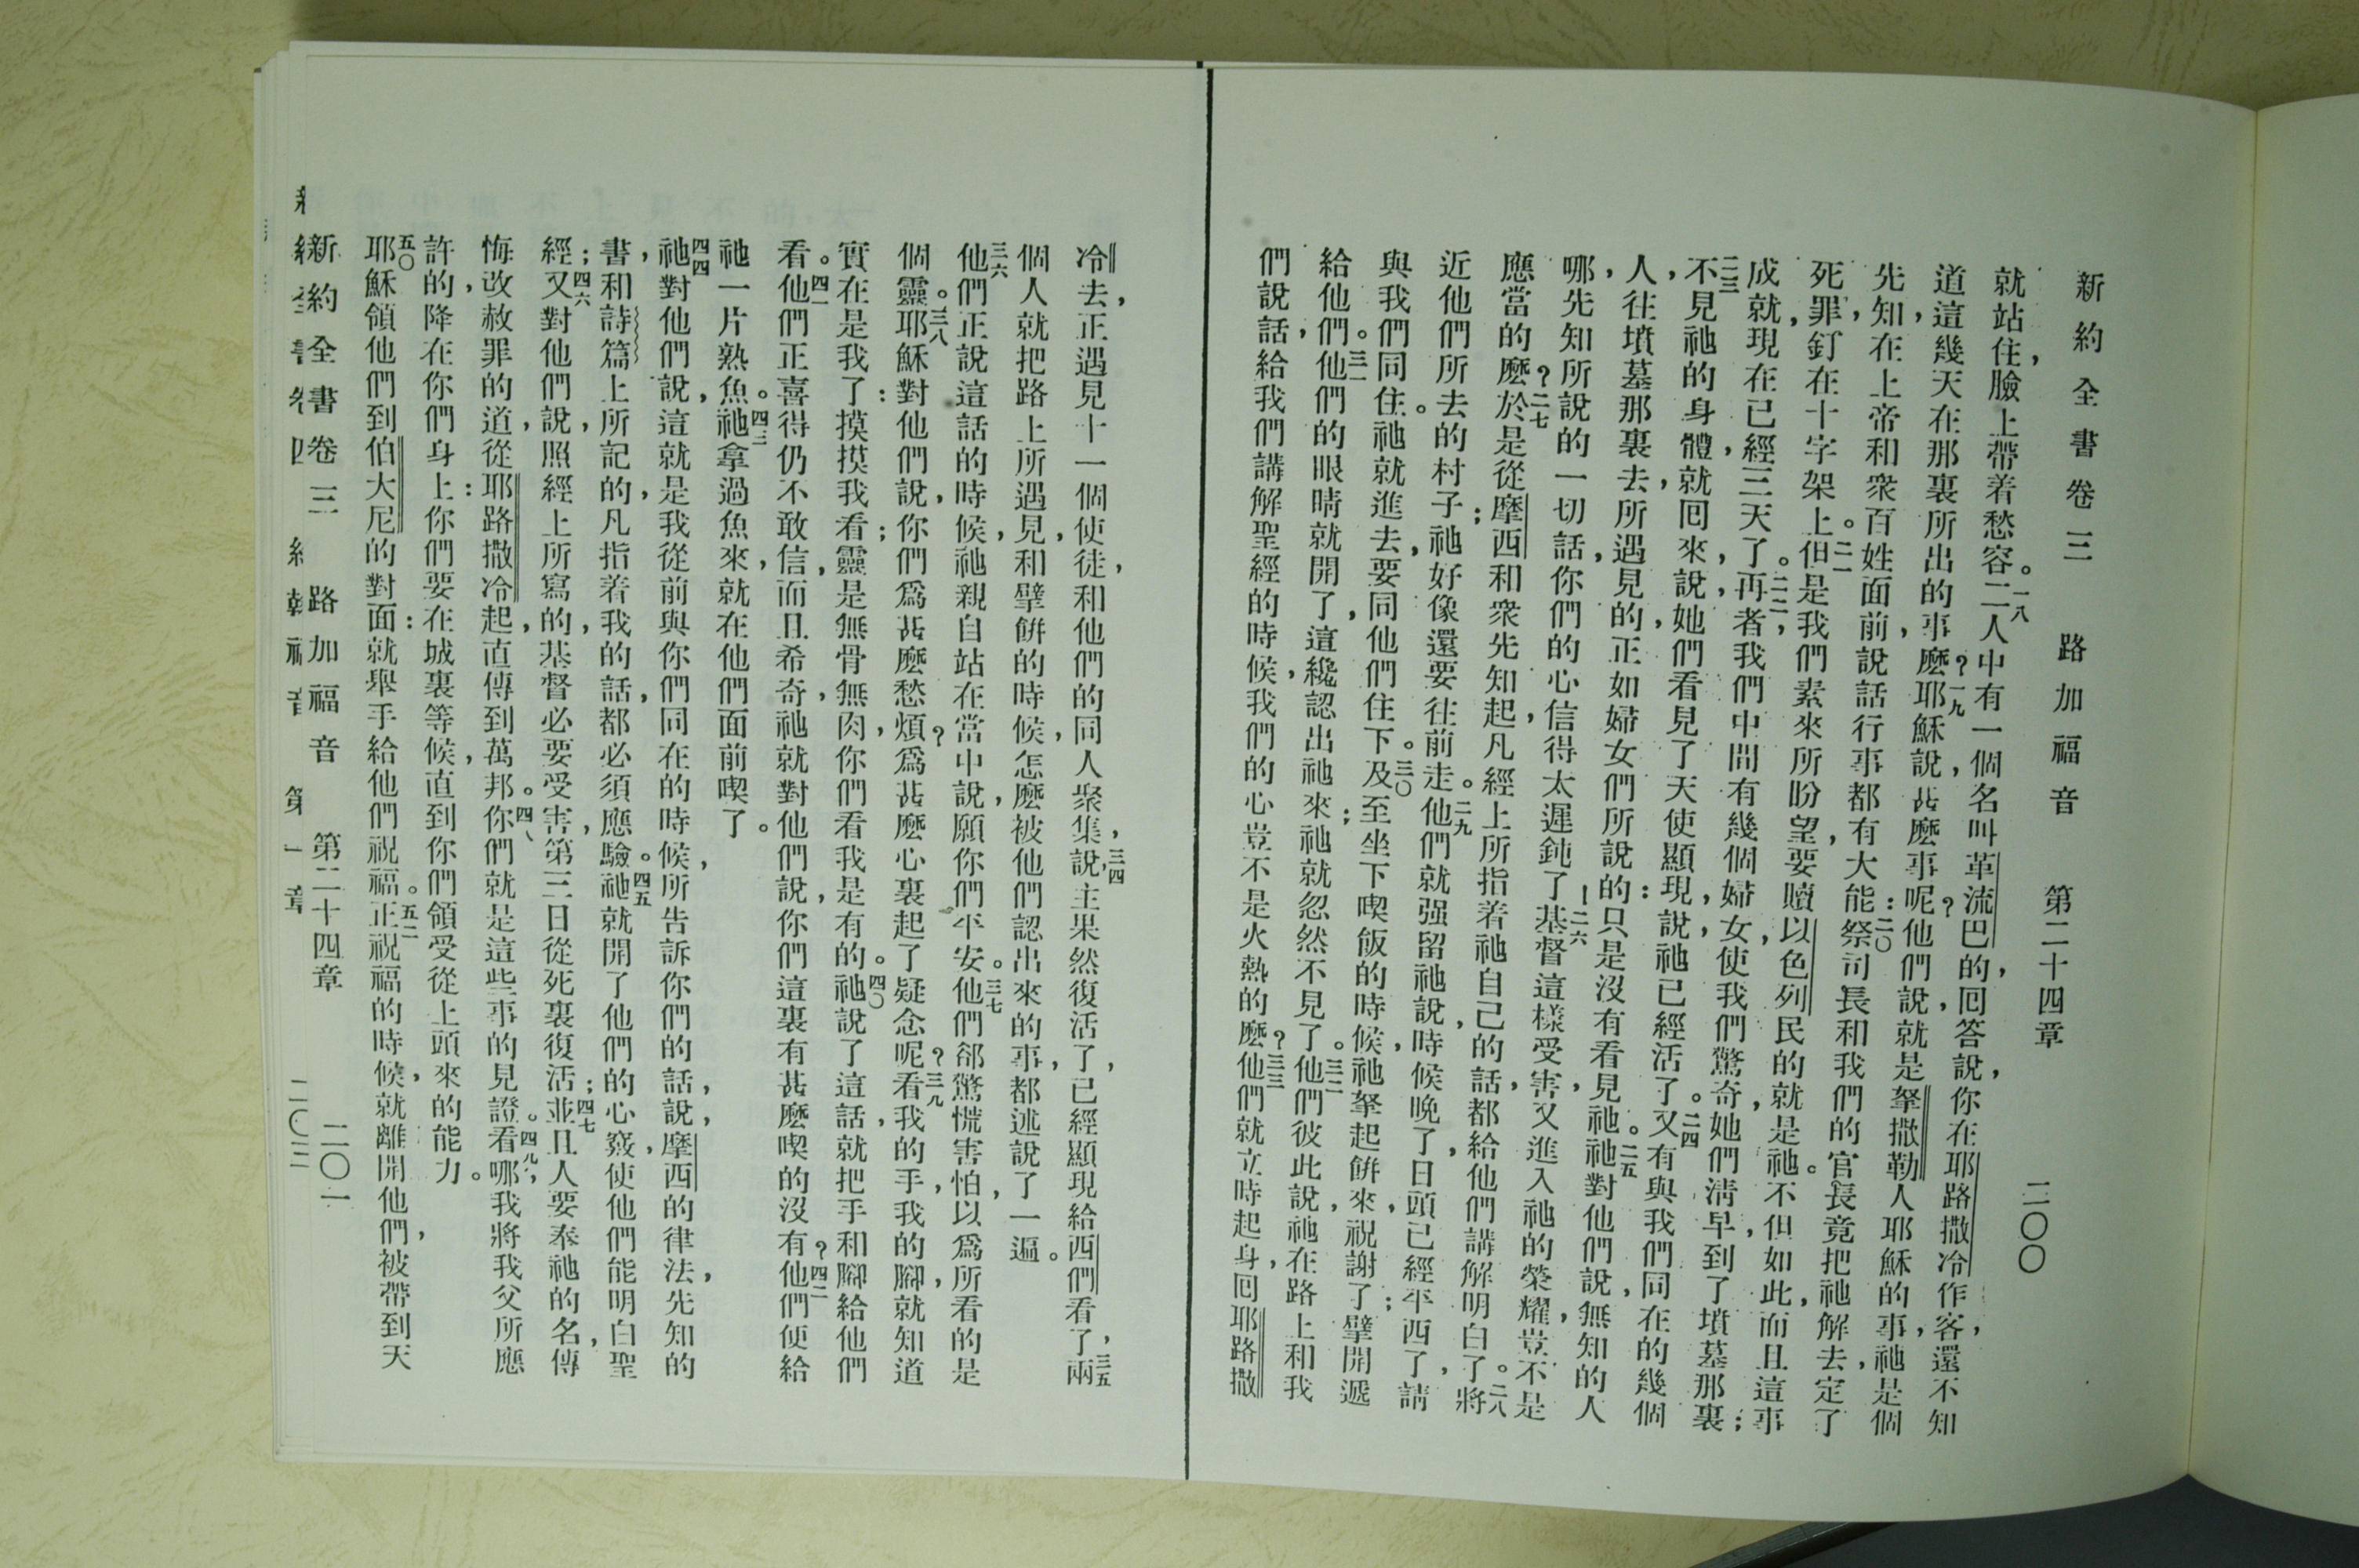 新約全書卷三 路加福音 第二十四章 二〇〇
就站住,臉上帶着愁容。一八二人中有一個名叫革流巴的,囘答說,你在耶路撒冷作客,還不知
道這幾天在那裏所出的事麼?一九耶穌說,甚麼事呢?他們說,就是拏撒勒人耶穌的事,祂是個
先知,在上帝和衆百姓面前,說話行事都有大能:二〇祭司長和我們的官長竟把祂解去,定了
死罪,釘在十字架上。二一但是我們素來所盼望,要贖以色列民的就是祂。不但如此,而且這事
成就,現在已經三天了。二二再者,我們中間有幾個婦女,使我們驚奇,她們淸早到了墳墓那裏;
二三不見祂的身體,就囘來說,她們看見了天使顯現,說祂已經活了。二四又有與我們同在的幾個
人,往墳墓那裏去,所遇見的,正如婦女們所說的:只是沒有看見祂。二五祂對他們說,無知的人
哪,先知所說的一切話,你們的心信得太遲鈍了!二六基督這樣受害,又進入祂的榮耀,豈不是
應當的麼?二七於是從摩西和衆先知起,凡經上所指着祂自己的話,都給他們講解明白了。二八將
近他們所去的村子;祂好像還要往前走。二九他們就强留祂說,時候晚了,日頭已經平西了,請
與我們同住。祂就進去,要同他們住下。三〇及至坐下喫飯的時候,祂拏起餅來,祝謝了;擘開遞
給他們。三一他們的眼睛就開了,這纔認出祂來;祂就忽然不見了。三二他們彼此說,祂在路上和我
們說話,給我們講解聖經的時候,我們的心豈不是火熱的麼?三三他們就立時起身,囘耶路撒
冷去,正遇見十一個使徒,和他們的同人聚集,三四說,主果然復活了,已經顯現給西們看了,三五兩
個人就把路上所遇見,和擘餅的時候,怎麼被他們認出來的事,都述說了一遍。
三六他們正說這話的時候,祂親自站在當中說,願你們平安。三七他們郤驚慌害怕,以爲所看的是
個靈。三八耶穌對他們說,你們爲甚麼愁煩?爲甚麼心裏起了疑念呢?三九看我的手,我的腳,就知道
實在是我了:摸摸我看;靈是無骨無肉,你們看我是有的。四〇祂說了這話,就把手和腳給他們
看。四一他們正喜得仍不敢信,而且希奇,祂就對他們說,你們這裏有甚麼喫的沒有?四二他們便給
祂一片熟魚。四三祂拿過魚來,就在他們面前喫了。
四四祂對他們說,這就是我從前與你們同在的時候,所告訴你們的話,說,摩西的律法,先知的
書,和詩篇上所記的,凡指着我的話,都必須應驗。四五祂就開了他們的心竅,使他們能明白聖
經;四六又對他們說,照經上所寫的,基督必要受害,第三日從死裏復活;四七並且人要奉祂的名,傳
悔改赦罪的道,從耶路撒冷起,直傳到萬邦。四八你們就是這些事的見證。四九看哪,我將我父所應
許的,降在你們身上:你們要在城裏等候,直到你們領受從上頭來的能力。
五〇耶穌領他們到伯大尼的對面:就舉手給他們祝福。五一正祝福的時候,就離開他們,被帶到天
新約全書卷三 路加福音 第二十四章 二〇一